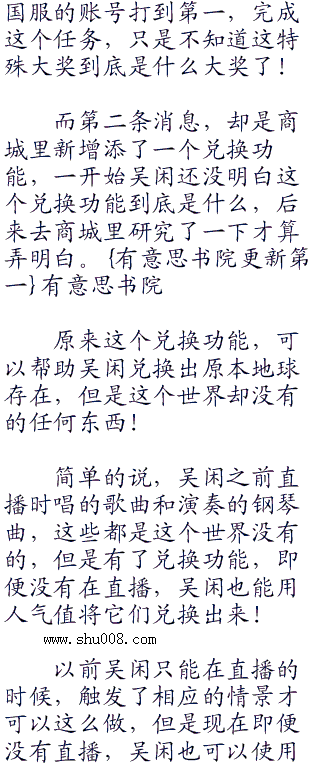 国服的账号打到第一，完成
这个任务，只是不知道这特
殊大奖到底是什么大奖了！
而第二条消息，却是商
城里新增添了一个兑换功
能，一开始吴闲还没明白这
个兑换功能到底是什么，后
来去商城里研究了一下才算
弄明白。{有意思书院更新第
一}有意思书院
原来这个兑换功能，可
以帮助吴闲兑换出原本地球
存在，但是这个世界却没有
的任何东西！
简单的说，吴闲之前直
播时唱的歌曲和演奏的钢琴
曲，这些都是这个世界没有
的，但是有了兑换功能，即
便没有在直播，吴闲也能用
人气值将它们兑换出来！
www.shu008.com
以前吴闲只能在直播的
时候，触发了相应的情景才
可以这么做，但是现在即便
没有直播，吴闲也可以使用